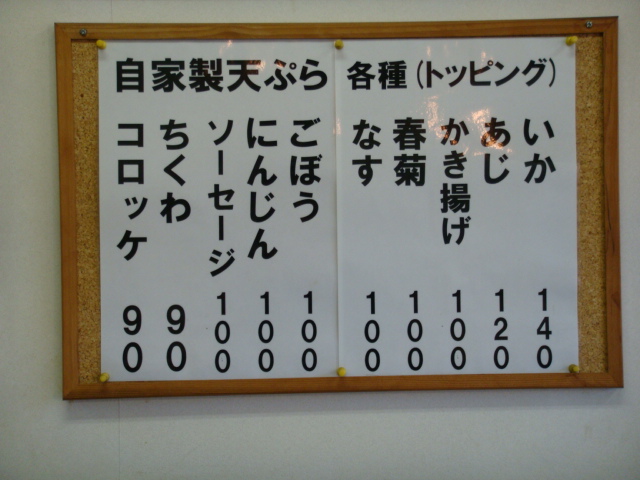 自家製天ぷら 各種(トッピング)
いか 140
あじ 120
かき揚げ 100
春菊 100
なす 100
ごぼう 100
にんじん 100
ソーセージ 100
ちくわ 90
コロッケ 90